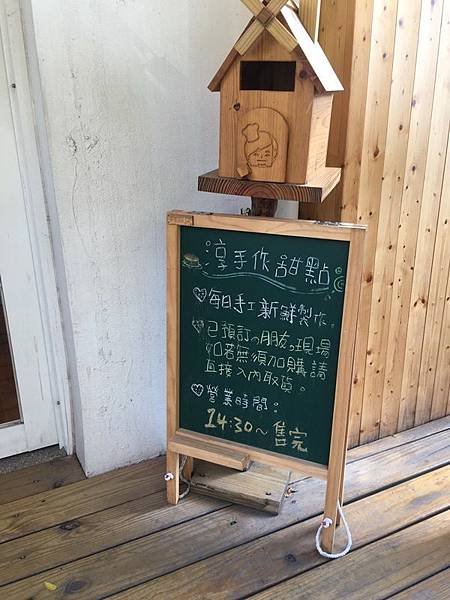 淳手作甜點
每日手工新鮮製作。
已預訂の朋友。現場
如若無須加購請
直接入內取貨。
營業時間：
14:30~售完